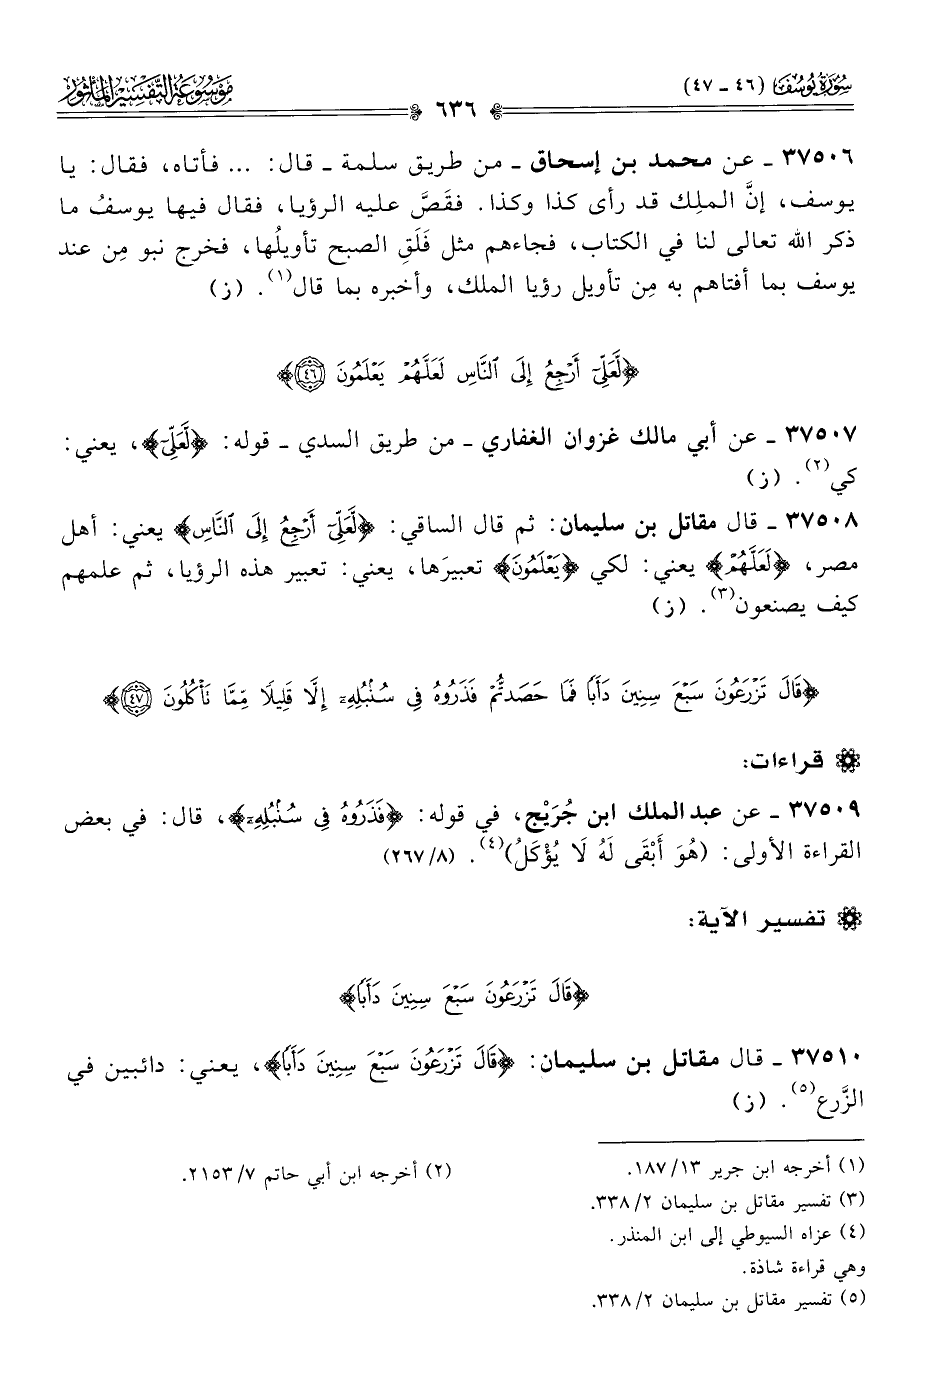 سُورَةُ يُوسُفَ (٤٦ - ٤٧)
٦٣٦
مَوْسُوعَة التَّفْسِيْر المأْثُور
٣٧٥٠٦ - عن محمد بن إسحاق - من طريق سلمة - قال: ... فأتاه، فقال: يا
يوسف، إنَّ الملِك قد رأى كذا وكذا. فقَصَّ عليه الرؤيا، فقال فيها يوسفُ ما
ذكر الله تعالى لنا في الكتاب، فجاءهم مثل فَلَقِ الصبح تأويلُها، فخرج نبو مِن عند
يوسف بما أفتاهم به مِن تأويل رؤيا الملك، وأخبره بما قال(١). (ز)
﴿لَّعَلِّىٓ أَرْجِعُ إِلَى ٱلنَّاسِ لَعَلَّهُمْ يَعْلَمُونَ ٤٦﴾
٣٧٥٠٧ - عن أبي مالك غزوان الغفاري - من طريق السدي - قوله: ﴿لَّعَلِّىٓ﴾، يعني:
كي(٢). (ز)
٣٧٥٠٨ - قال مقاتل بن سليمان: ثم قال الساقي: ﴿لَّعَلِّىٓ أَرْجِعُ إِلَى ٱلنَّاسِ﴾ يعني: أهل
مصر، ﴿لَعَلَّهُمْ﴾ يعني: لكي ﴿يَعْلَمُونَ﴾ تعبيرَها، يعني: تعبير هذه الرؤيا، ثم علمهم
كيف يصنعون(٣). (ز)
﴿قَالَ تَزْرَعُونَ سَبْعَ سِنِينَ دَأَبًا فَمَا حَصَدتُّمْ فَذَرُوهُ فِى سُنۢبُلِهِۦٓ إِلَّا قَلِيلًا مِّمَّا تَأْكُلُونَ ٤٧﴾
قراءات:
٣٧٥٠٩ - عن عبدالملك ابن جُرَيْج، في قوله: ﴿فَذَرُوهُ فِى سُنۢبُلِهِۦٓ﴾، قال: في بعض
القراءة الأولى: (هُوَ أَبْقَى لَهُ لَا يُؤْكَلُ)(٤). (٨/ ٢٦٧)
تفسير الآية:
﴿قَالَ تَزْرَعُونَ سَبْعَ سِنِينَ دَأَبًا﴾
٣٧٥١٠ - قال مقاتل بن سليمان: ﴿قَالَ تَزْرَعُونَ سَبْعَ سِنِينَ دَأَبًا﴾، يعني: دائبين في
الزَّرع(٥). (ز)
(١) أخرجه ابن جرير ١٣/ ١٨٧.
(٢) أخرجه ابن أبي حاتم ٧/ ٢١٥٣.
(٣) تفسير مقاتل بن سليمان ٢/ ٣٣٨.
(٤) عزاه السيوطي إلى ابن المنذر.
وهي قراءة شاذة.
(٥) تفسير مقاتل بن سليمان ٢/ ٣٣٨.